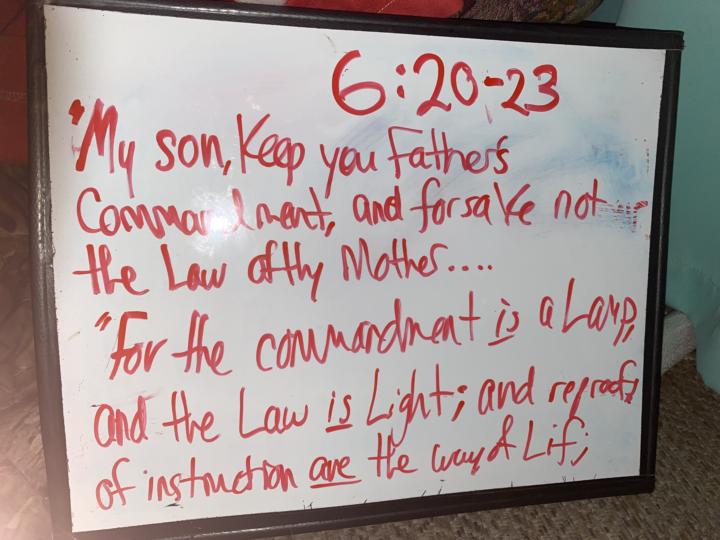 6:20-23
"My son, Keep you Father's
Commandment, and forsake not
the Law of thy Mother....
"For the commandment is a Lamp,
and the Law is Light; and reproofs
of instruction are the way of Lif;